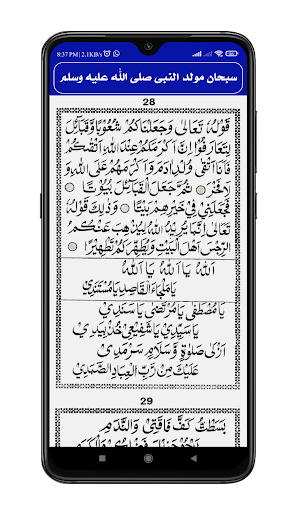 8:37 PM | 2.1KB/s
سبحان مولد النبی صلی الله علیه وسلم
28
قَوْلُهُ تَعَالٰى وَجَعَلْنَاكُمْ شُعُوْبًا وَّقَبَآئِلَ
لِتَعَارَفُوْا اِنَّ اَكْرَمَكُمْ عِنْدَ اللهِ اَتْقٰىكُمْ
فَاَنَا اَتْقٰى وُلْدِ اٰدَمَ وَاَكْرَمُهُمْ عَلَى اللهِ وَ
لَا فَخْرَ ثُمَّ جَعَلَ الْقَبَآئِلَ بُيُوْتًا
فَجَعَلَنِيْ فِيْ خَيْرِهِمْ بَيْتًا وَذٰلِكَ قَوْلُهُ
تَعَالٰى اِنَّمَا يُرِيْدُ اللهُ لِيُذْهِبَ عَنْكُمُ
الرِّجْسَ اَهْلَ الْبَيْتِ وَيُطَهِّرَكُمْ تَطْهِيْرًا
اَللهُ يَا اَللهُ يَا اَللهُ
يَا مَلْجَأَ الْقَاصِدِ يَا مُسْتَنَدِيْ
يَا مُصْطَفٰى يَا مُرْتَضٰى يَا سَنَدِيْ
يَا سَيِّدِيْ يَا شَفِيْعِيْ خُذْ بِيَدِيْ
اَزْكٰى صَلٰوةٍ وَّسَلَامٍ سَرْمَدِيْ
عَلَيْكَ مِنْ رَّبِّ الْعِبَادِ الصَّمَدِيْ
29
بَسَطْتُ كَفَّ فَاقَتِيْ وَالنَّدَمِ